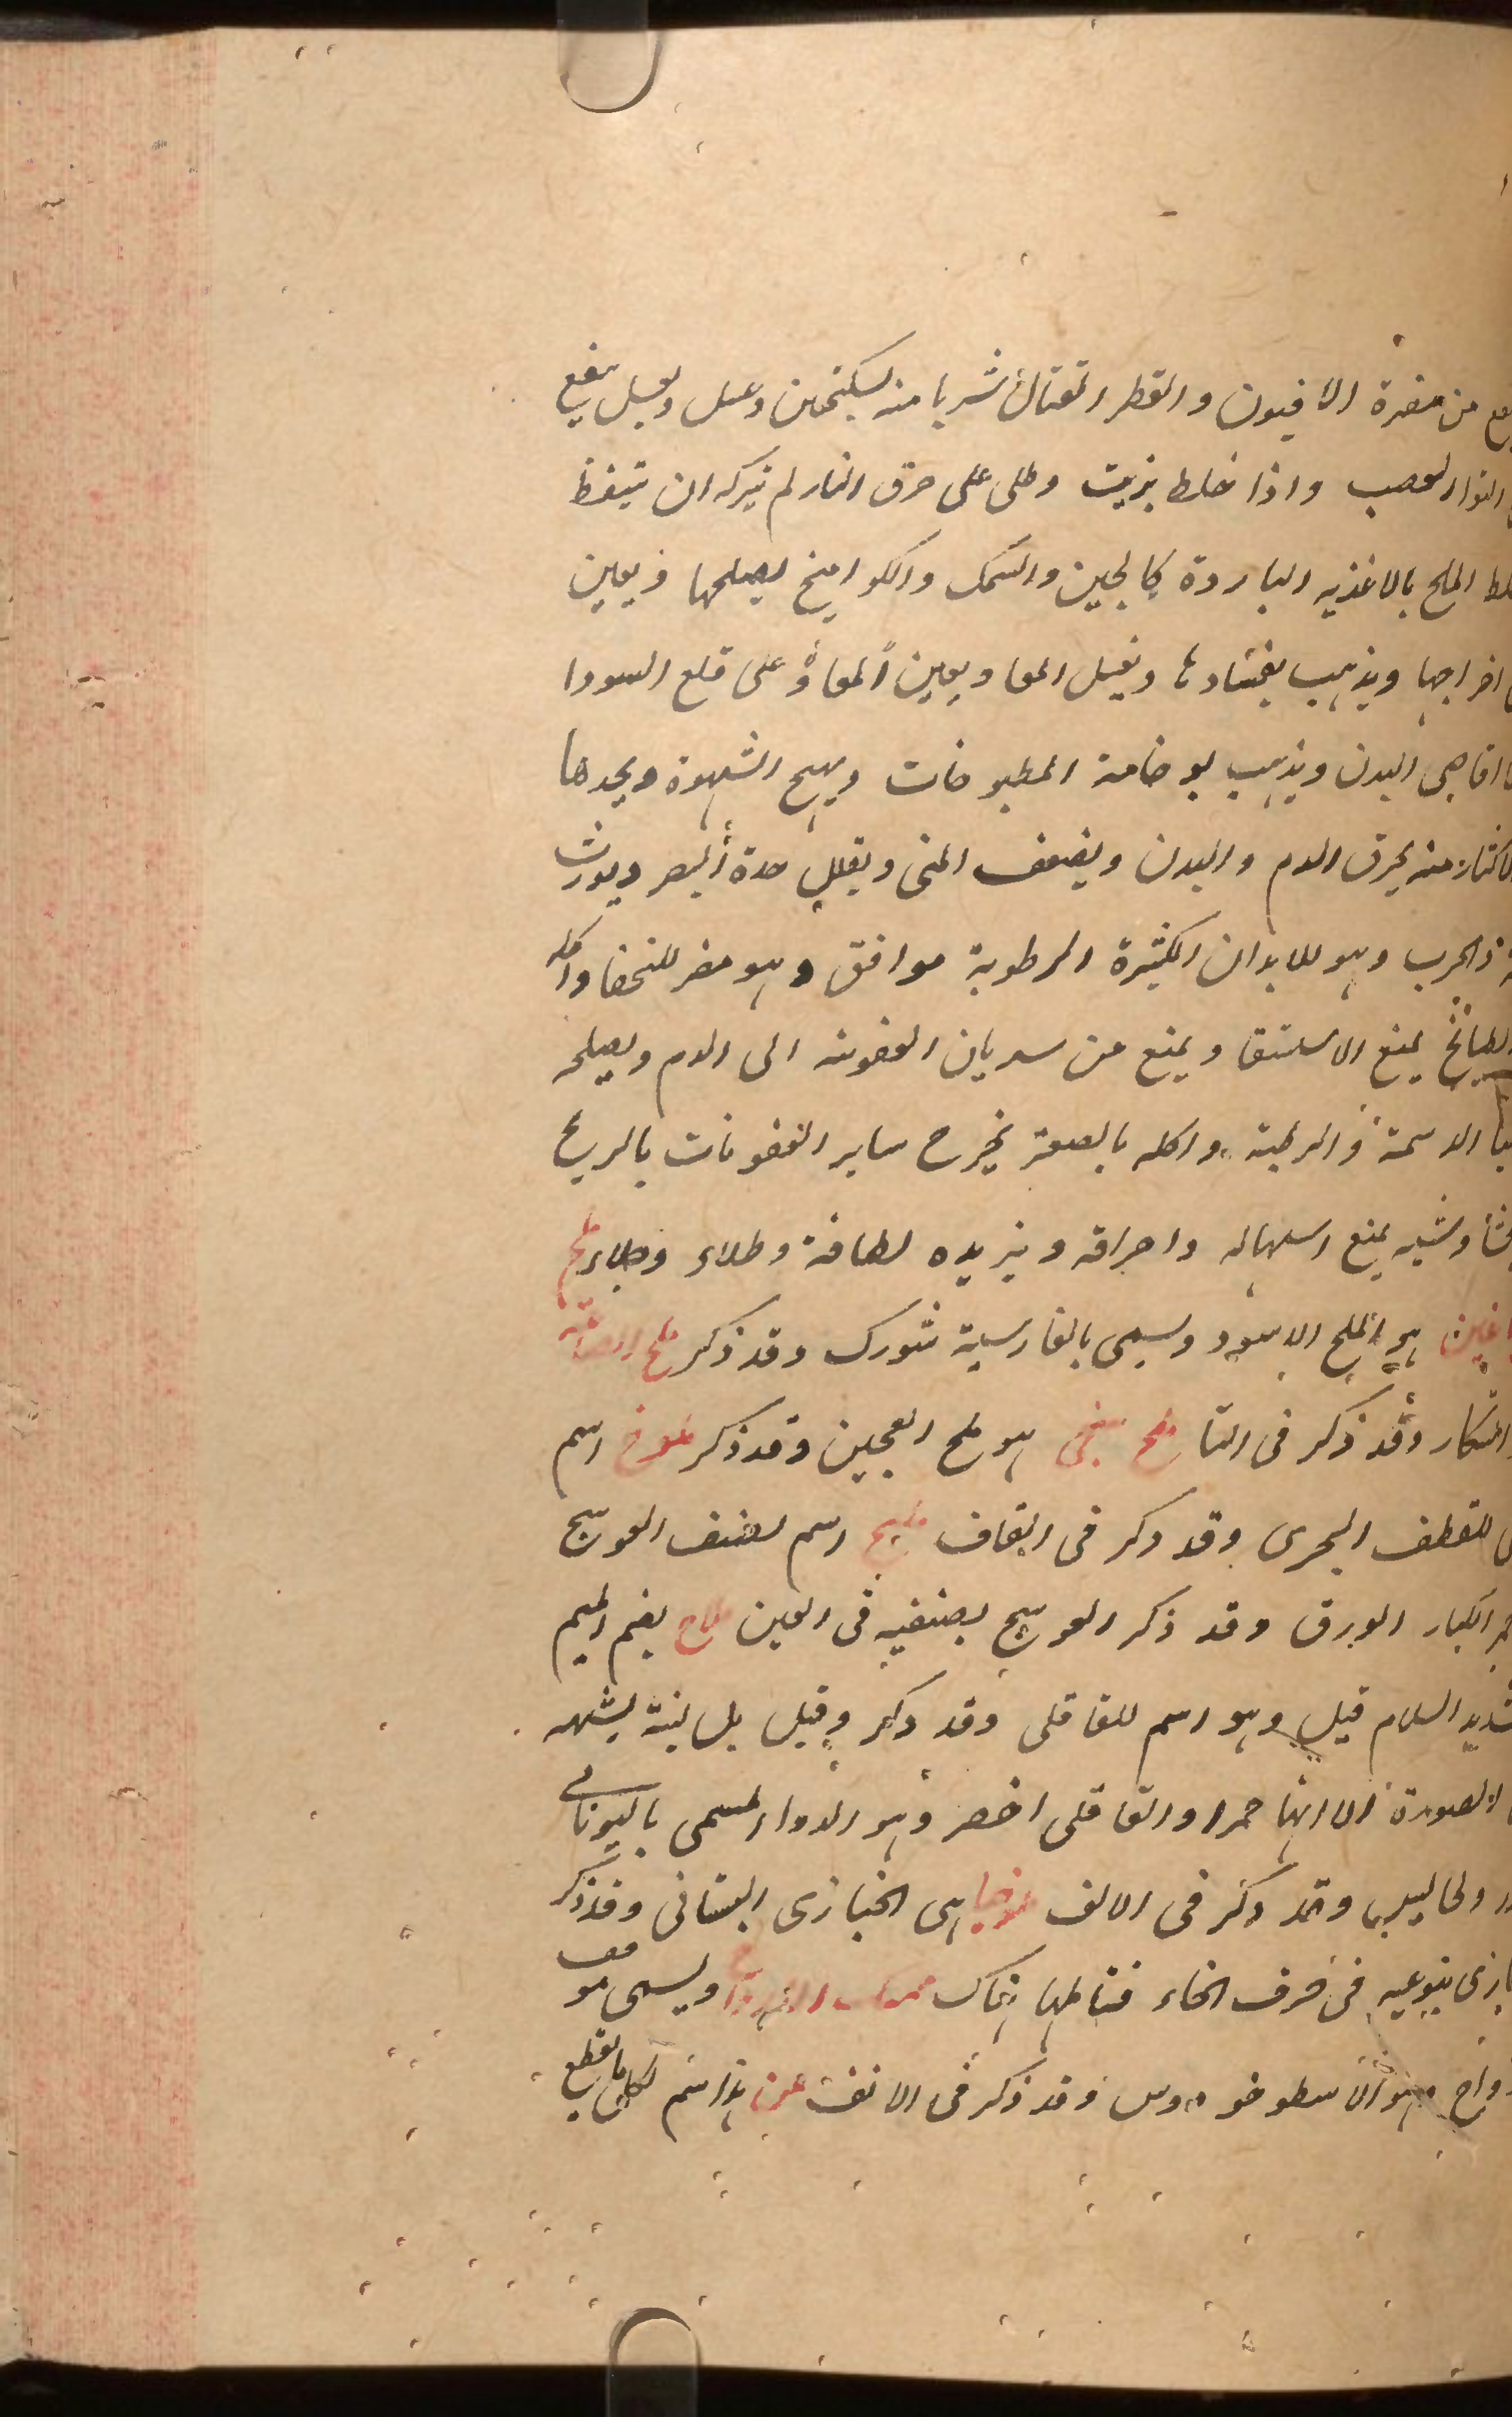 من مضرة الافيون والقطر القتال شربا منه بسكنجبين وعسل وبعسل ينفع
التواء العصب واذا خلط بزيت وطلى على حرق النار لم يتركه ان يتنفط
الملح بالاغذيه الباردة كالجبن والسمك والكوامخ يصلحها ويعين
اخراجها ويذهب بفسادها ويغسل المعا ويعين المعاؤ على قلع السودا
اقاصى البدن ويذهب بوخامة المطبوخات ويهيج الشهوة ويحدها
منه يحرق الدم والبدن ويضعف المنى ويقلل حدة البصر ويورث
والجرب وهو للابدان الكثيرة الرطوبة موافق وهو مضر للنحفا واكله
يمنع الاستسقا ويمنع من سريان العفونه الى الدم ويصلحه
الدسمة والرطبة واكله بالصعتر يخرج ساير العفونات بالريح
وشيه يمنع اسهاله واحراقه ويزيده لطافة وطلاء وجلاء ملح
هو الملح الاسود ويسمى بالفارسية شورك وقد ذكر ملح الصاغه
التنكار وقد ذكر فى التا ملح سبخى هو ملح العجين وقد ذكر ملوخ اسم
للقطف البحرى وقد ذكر فى القاف مليح اسم لصنف العوسج
الكبار الورق وقد ذكر العوسج بصنفيه فى العين ملاح بضم الميم
السلام قيل وهو اسم للقاقلى وقد ذكر وقيل بل نبتة يشبهه
الصورة الا انها حمرا والقاقلى اخضر وهو الدواء المسمى باليونانى
وقد ذكر فى الالف ملوخيا هى الخبازى البستانى وقد ذكر
بنوعيه فى حرف الخاء فتاملها هناك ممسك الارواح ويسمى موقف
هو الاسطوخودوس وقد ذكر فى الالف من هذا اسم لكل ما يقطع